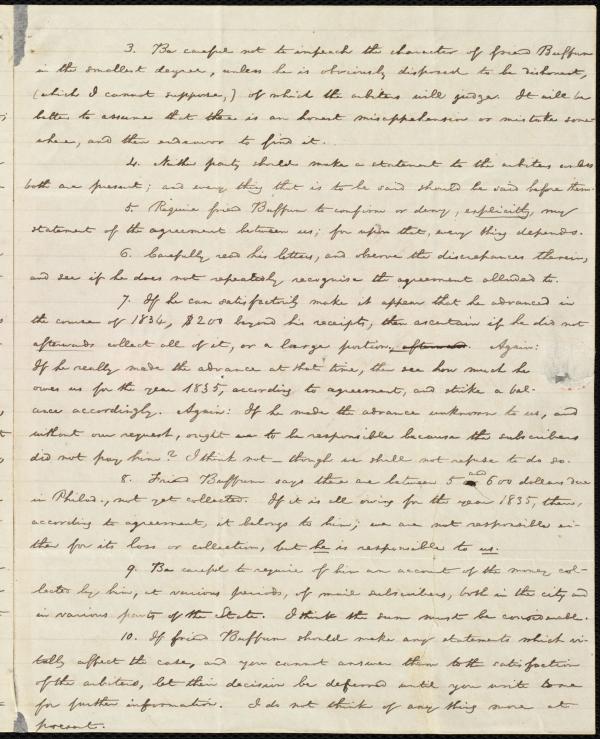 3. Be careful not to impeach the character of friend Buffum
in the smallest degree, unless he is obviously disposed to be dishonest,
(which I cannot suppose,) of which the arbiters will judge. It will be
better to assume that there is an honest misapprehension or mistake some-
where, and then endeavor to find it.
4. Neither party should make a statement to the arbiters unless
both are present; and every thing that is to be said should be said before them.
5. Require friend Buffum to confirm or deny, explicitly, my
statement of the agreement between us; for upon that, every thing depends.
6. Carefully read his letters, and observe the discrepances therein,
and see if he does not repeatedly recognise the agreement alluded to.
7. If he can satisfactorily make it appear that he advanced in
the course of 1834, $200 beyond his receipts, then ascertain if he did not
afterwards collect all of it, or a large portion, afterward. Again:
If he really made the advance at that time, then see how much he
owes us for the year 1835, according to agreement, and strike a bal-
ance accordingly. Again: If he made the advance unknown to us, and
without our request, ought we to be responsible because the subscribers
did not pay him? I think not—though we shall not refuse to do so.
8. Friend Buffum says there are between 5 and 600 dollars due
in Philad., not yet collected. If it is all owing for the year 1835, then,
according to agreement, it belongs to him; we are not responsible ei-
ther for its loss or collection, but he is responsible to us.
9. Be careful to require of him an account of the money col-
lected by him, at various periods, of mail subscribers, both in the city and
in various parts of the State. I think the sum must be considerable.
10. If friend Buffum should make any statements which vi-
tally affect the case, and you cannot answer them to the satisfaction
of the arbiters, let their decision be deferred until you write to me
for further information. I do not think of any thing more at
present.